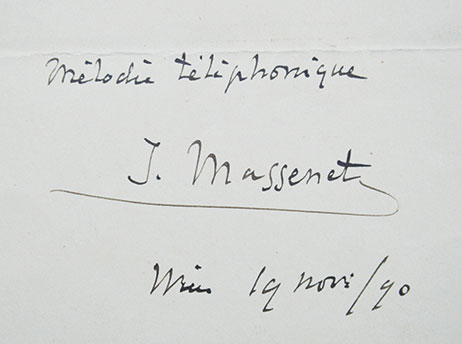 Mélodie téléphonique
J. Massenet
19 nov: /90